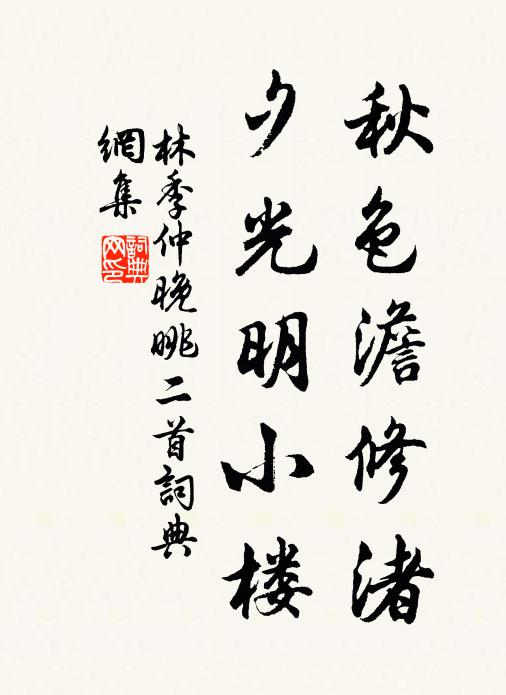 秋色澹修渚
夕光明小楼
林季仲晚眺二首詞典
網集
詞典
网印